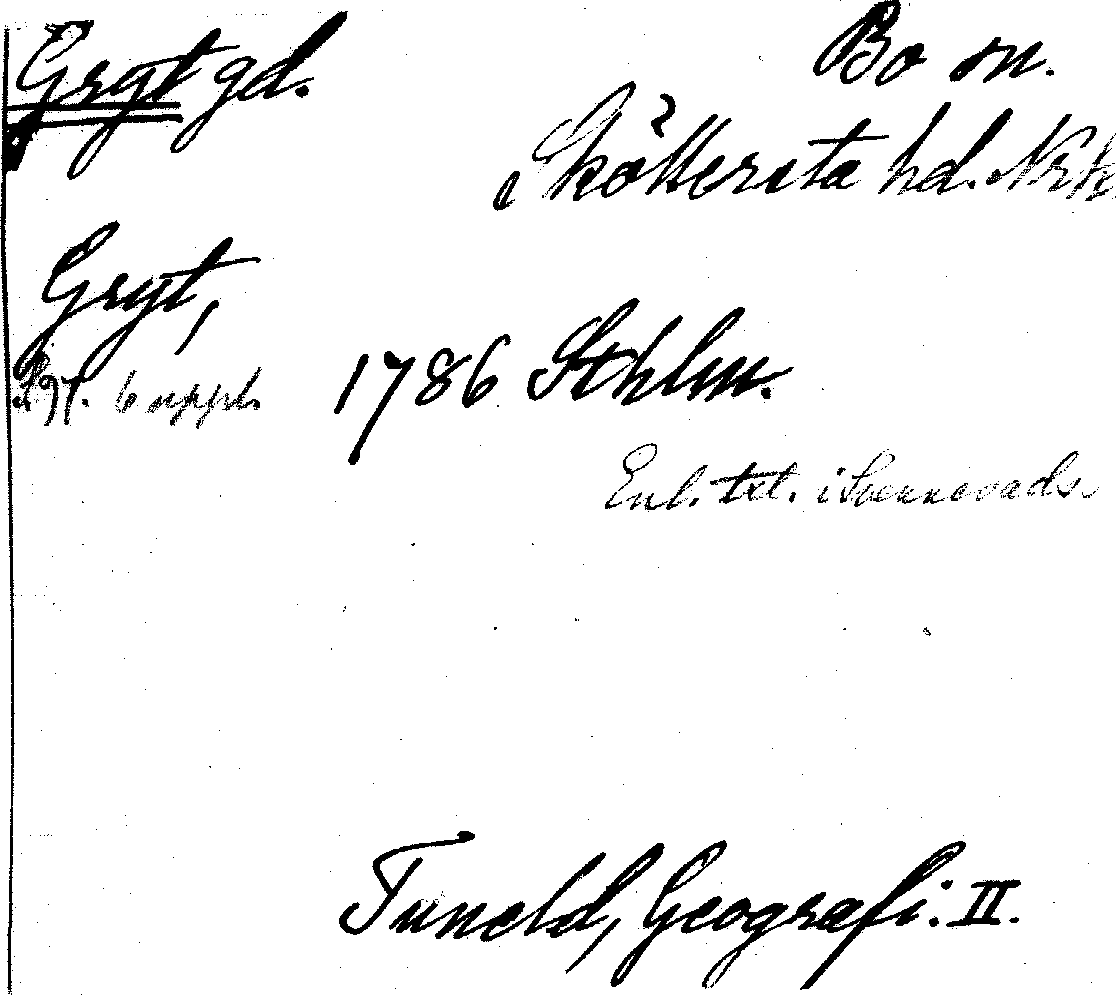 Gryt gd. Bo sn.
Sköllersta hd. Nrk.
Gryt,
S. 97. 6 uppl. 1786 Sthlm.
Enl. txt. i Svennevads.
Tuneld, Geografi. II.